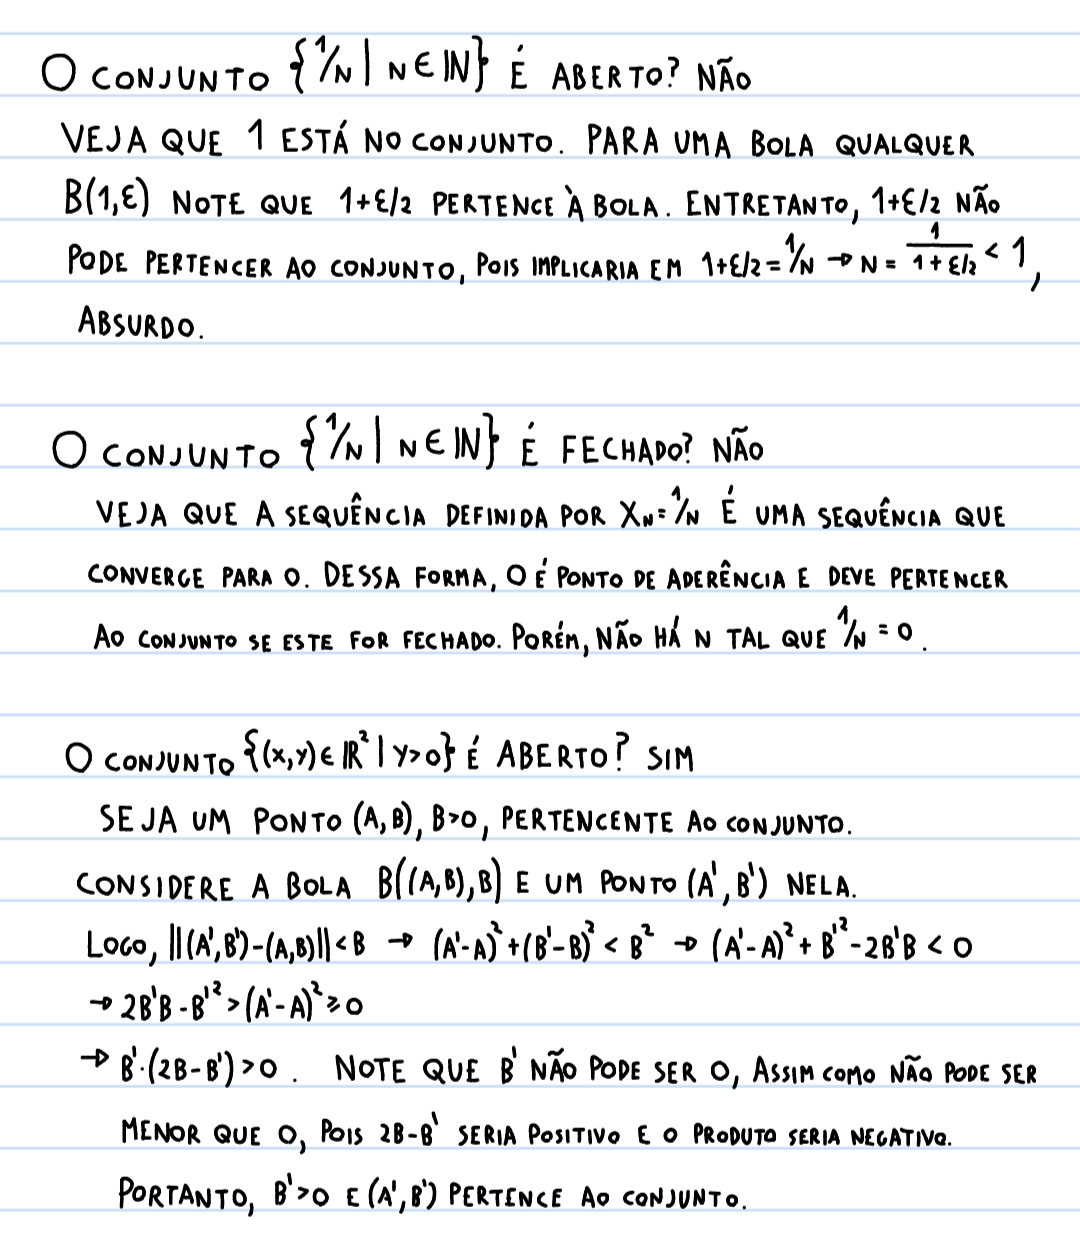 O CONJUNTO {1/N | N ∈ ℕ} É ABERTO? NÃO
VEJA QUE 1 ESTÁ NO CONJUNTO. PARA UMA BOLA QUALQUER
B(1,ε) NOTE QUE 1+ε/2 PERTENCE À BOLA. ENTRETANTO, 1+ε/2 NÃO
PODE PERTENCER AO CONJUNTO, POIS IMPLICARIA EM 1+ε/2 = 1/N → N = 1/(1+ε/2) < 1,
ABSURDO.
O CONJUNTO {1/N | N ∈ ℕ} É FECHADO? NÃO
VEJA QUE A SEQUÊNCIA DEFINIDA POR Xₙ = 1/N É UMA SEQUÊNCIA QUE
CONVERGE PARA 0. DESSA FORMA, 0 É PONTO DE ADERÊNCIA E DEVE PERTENCER
AO CONJUNTO SE ESTE FOR FECHADO. PORÉM, NÃO HÁ N TAL QUE 1/N = 0.
O CONJUNTO {(x,y) ∈ ℝ² | y>0} É ABERTO? SIM
SEJA UM PONTO (A,B), B>0, PERTENCENTE AO CONJUNTO.
CONSIDERE A BOLA B((A,B),B) E UM PONTO (A',B') NELA.
LOGO, ||(A',B')-(A,B)|| < B → (A'-A)²+(B'-B)² < B² → (A'-A)²+B'²-2B'B < 0
→ 2B'B-B'² > (A'-A)² ≥ 0
→ B'·(2B-B') > 0. NOTE QUE B' NÃO PODE SER 0, ASSIM COMO NÃO PODE SER
MENOR QUE 0, POIS 2B-B' SERIA POSITIVO E O PRODUTO SERIA NEGATIVO.
PORTANTO, B'>0 E (A',B') PERTENCE AO CONJUNTO.